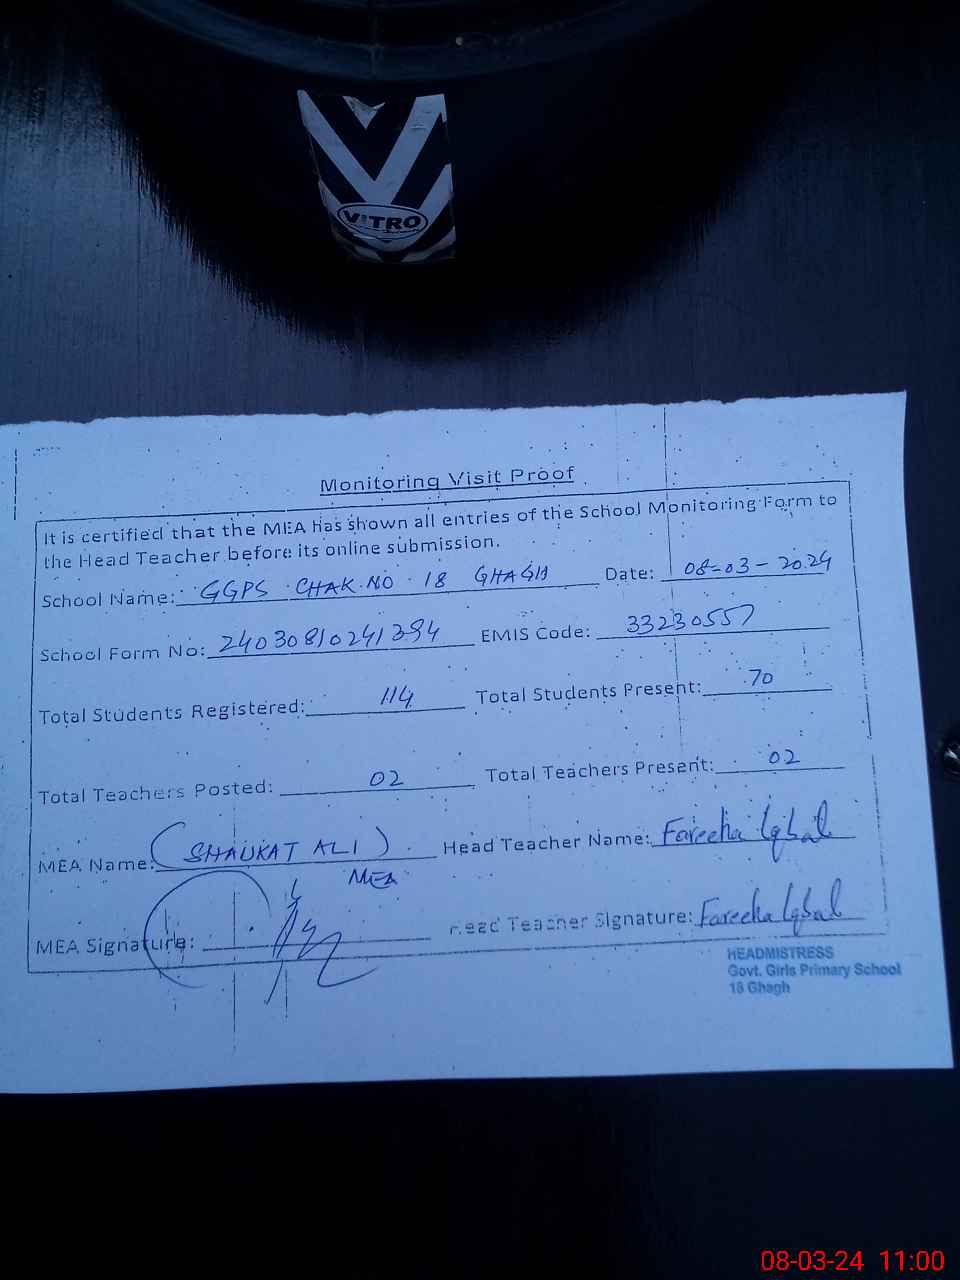 VITRO
Monitoring Visit Proof
It is certified that the MEA has shown all entries of the School Monitoring Form to
the Head Teacher before its online submission.
School Name: GGPS CHAK NO 18 GHAGH Date: 08-03-2024
School Form No: 24030810241394 EMIS Code: 33230557
Total Students Registered: 114 Total Students Present: 70
Total Teachers Posted: 02 Total Teachers Present: 02
MEA Name: (SHAUKAT ALI) Head Teacher Name: Fareeha Iqbal
MEA
MEA Signature: Head Teacher Signature: Fareeha Iqbal
HEADMISTRESS
Govt. Girls Primary School
18 Ghagh
08-03-24 11:00